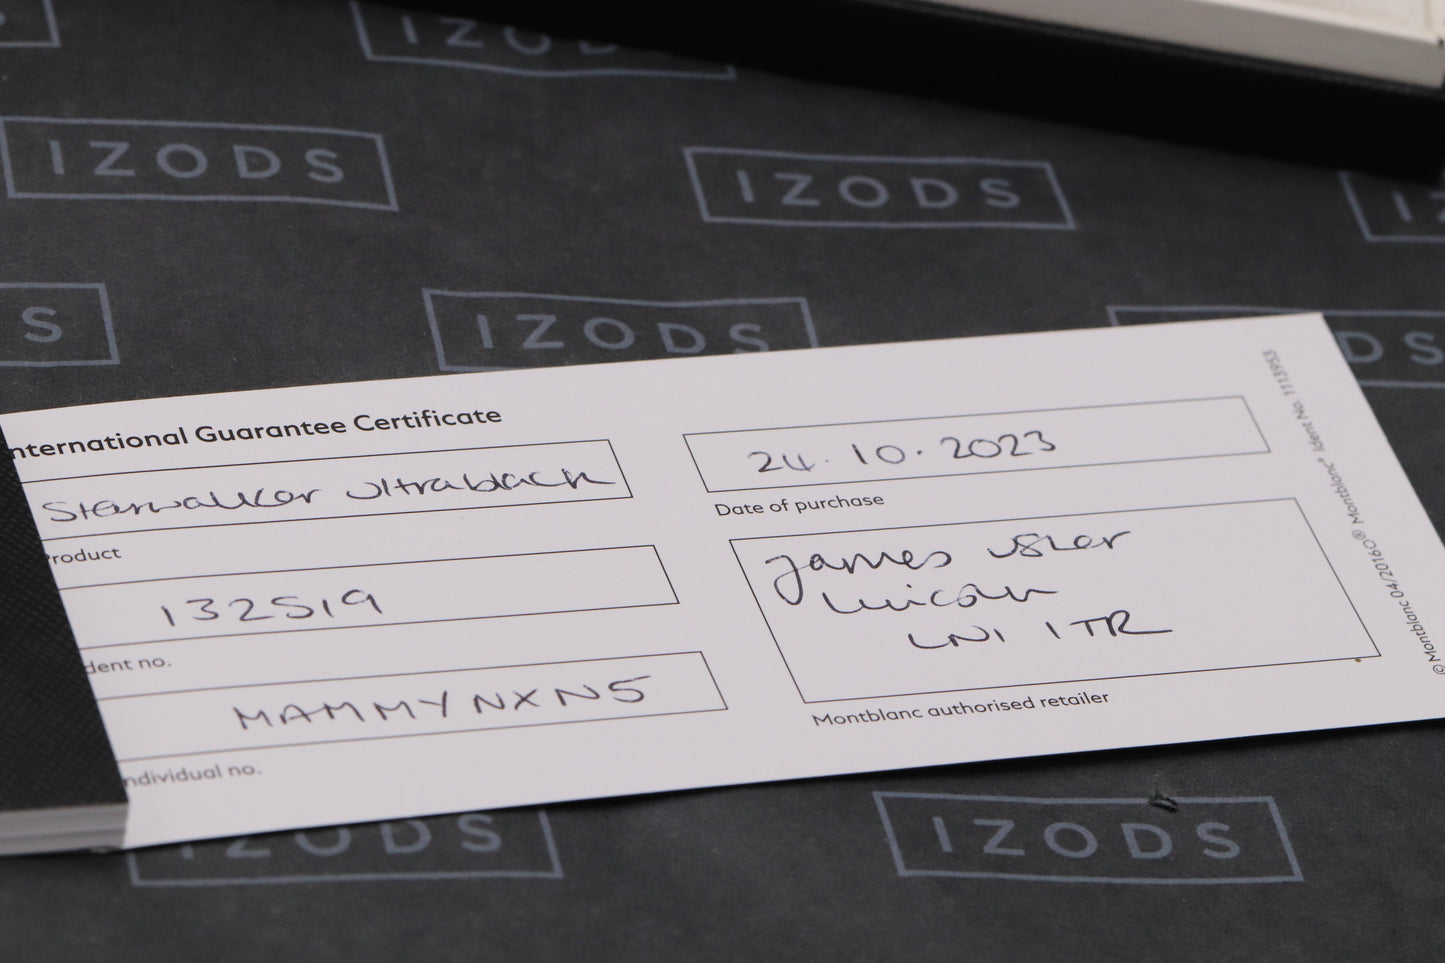 IZODS
IZODS
IZODS
S
IZODS
DS
nternational Guarantee Certificate
Starwalker Ultrablack
Product
132519
dent no.
MAMMYNXN5
ndividual no.
24.10.2023
Date of purchase
James Usher
Lincoln
LN1 1TR
Montblanc authorised retailer
©Montblanc 04/2016 Montblanc® Ident No. 1113953
IZODS
IZODS